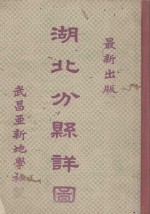 最新出版
湖北分縣詳圖
武昌亞新地學社